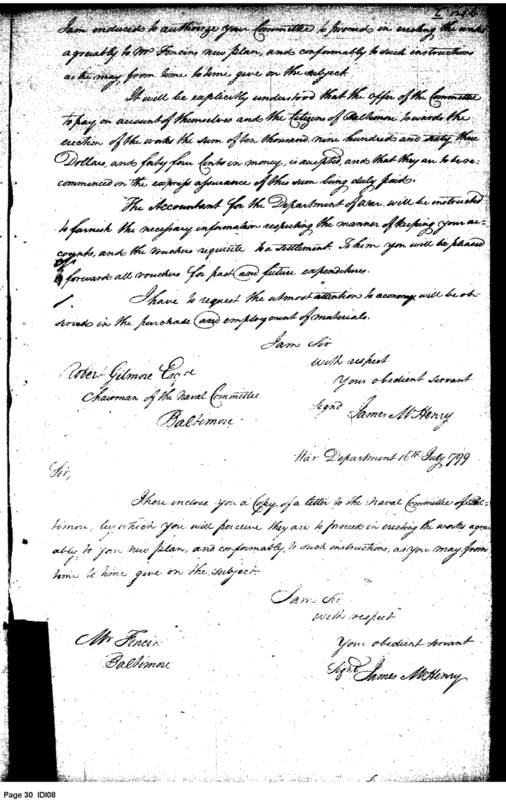 I am induced to authorize your Committee to proceed in erecting the works
agreeably to Mr Foncins new plan, and conformably to such instructions
as he may from time to time give on the subject.
It will be explicitly understood that the offer of the Committee
to pay on account of themselves and the Citizens of Baltimore towards the
erection of the works the sum of ten thousand nine hundred and sixty three
Dollars, and forty four Cents in money, is accepted, and that they are to be re-
commenced on the express assurance of this sum being duly paid.
The Accountant for the Department of War will be instructed
to furnish the necessary information respecting the manner of keeping your ac-
counts, and the vouchers requisite to a settlement. To him you will be pleased
to forward all vouchers for past and future expenditures.
I have to request the utmost attention to economy will be ob-
served in the purchase and employment of materials.
I am Sir
with respect
Your obedient servant
Signd James McHenry
Robert Gilmore Esqre
Chairman of the Naval Committee
Baltimore
War Department 16th July 799
Sir,
I here inclose you a Copy of a letter to the Naval Committee of Bal-
timore, by which you will perceive they are to proceed in erecting the works agree-
ably to your new plan, and conformably to such instructions, as you may from
time to time give on the subject.
I am Sir
with respect
Your obedient servant
Signd James McHenry
Mr Foncin
Baltimore
Page 30 IDI08